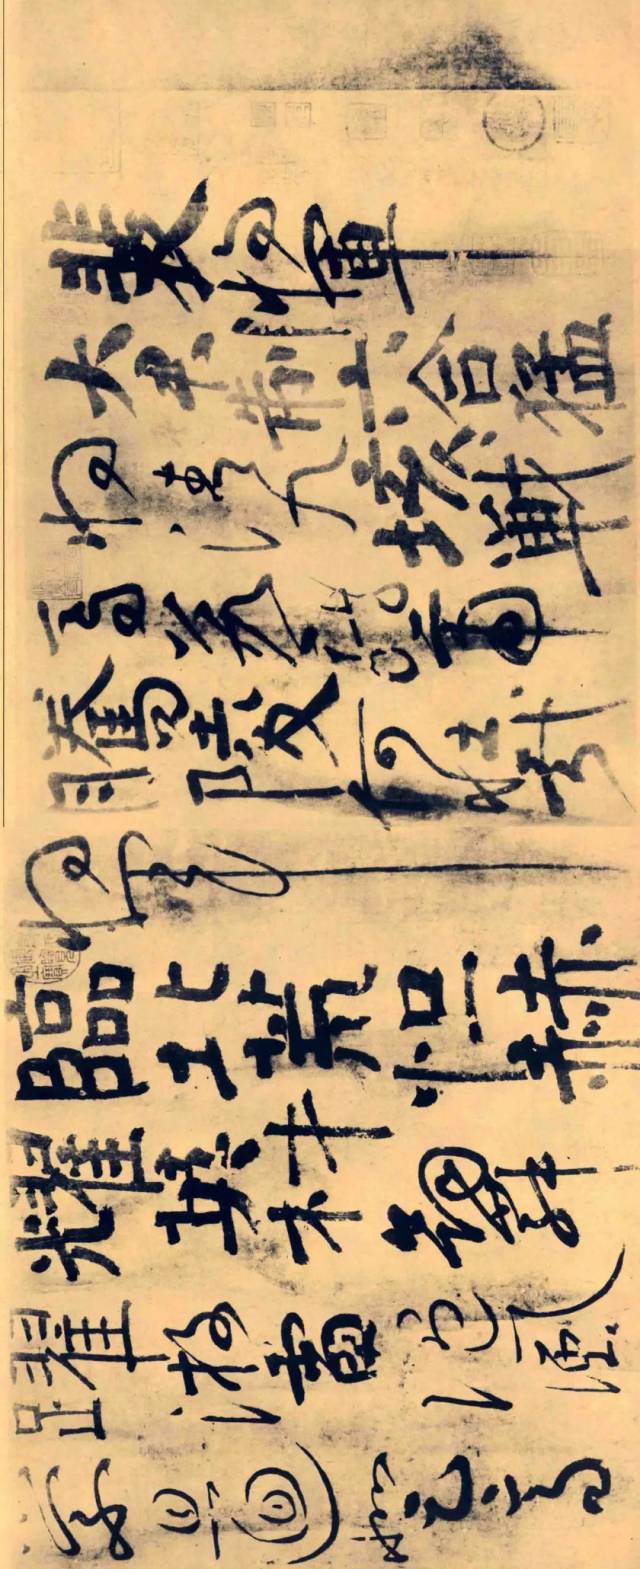 裴将軍
大君制六合猛
将清九垓戰
馬若龍虎
騰陵何壯哉
将軍
臨北荒烜赫
耀英材劍舞
躍游電隨風
縈且迴登高